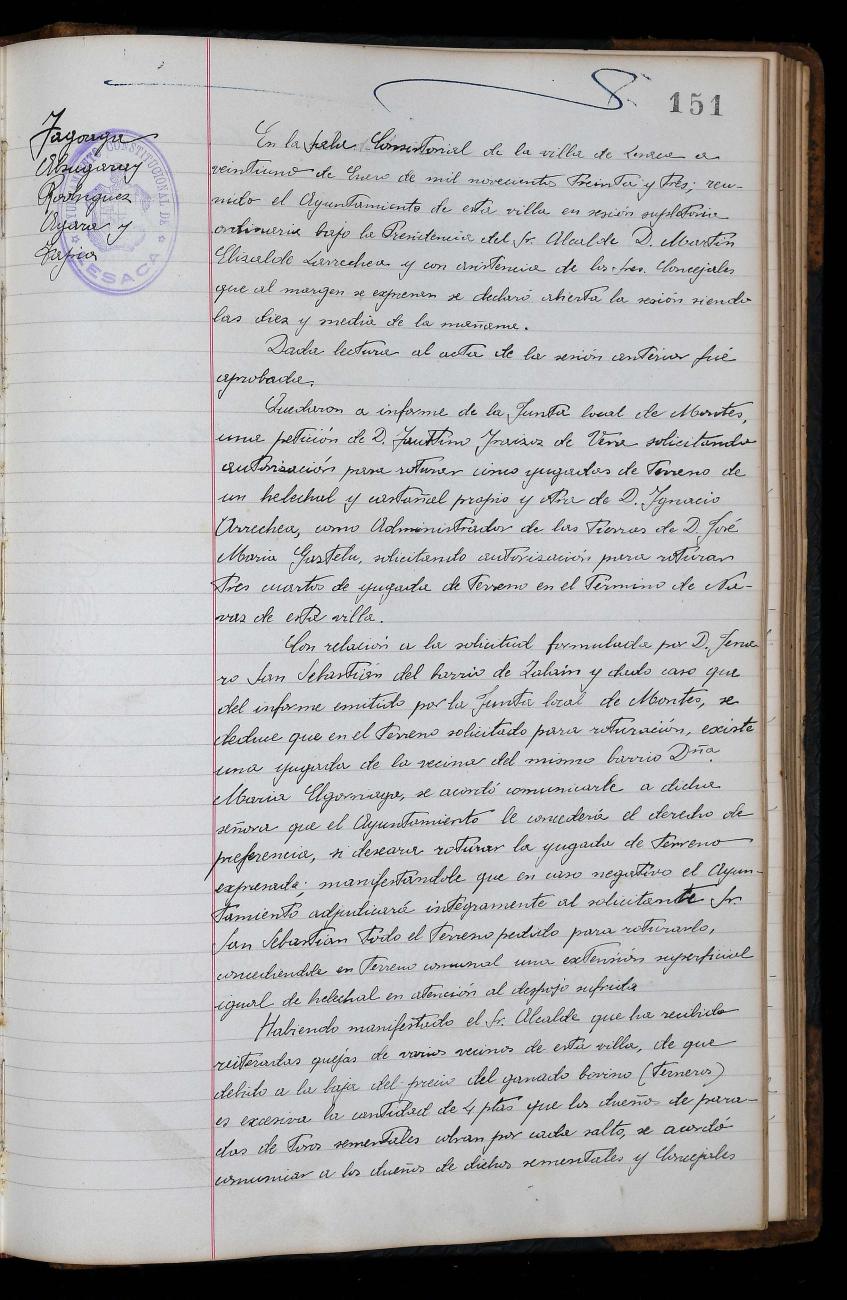 151
Jagoaga
Alzugaray
Rodriguez
Ayara y
Tapia
AYUNTAMIENTO CONSTITUCIONAL DE
LESACA
En la sala Consistorial de la villa de Lesaca a
veintiuno de Enero de mil novecientos treinta y tres; reu-
nido el Ayuntamiento de esta villa en sesión supletoria
ordinaria bajo la Presidencia del Sr. Alcalde D. Martin
Elizalde Larrechea y con asistencia de los Sres. Concejales
que al margen se expresan se declaró abierta la sesión siendo
las diez y media de la mañana.
Dada lectura al acta de la sesión anterior fué
aprobada.
Quedaron a informe de la Junta local de Montes,
una petición de D. Faustino Iraizoz de Vera solicitando
autorización para roturar cinco yugadas de terreno de
un helechal y castañal propio y otra de D. Ignacio
Arrechea, como Administrador de las tierras de D. José
Maria Gaztelu, solicitando autorización para roturar
tres cuartos de yugada de terreno en el término de Na-
vaz de esta villa.
Con relación a la solicitud formulada por D. Jena-
ro San Sebastián del barrio de Zalain y dado caso que
del informe emitido por la Junta local de Montes, se
deduce que en el terreno solicitado para roturación, existe
una yugada de la vecina del mismo barrio Dña.
Maria Elgorriaga, se acordó comunicarle a dicha
señora que el Ayuntamiento le concedería el derecho de
preferencia, si deseara roturar la yugada de terreno
expresada; manifestandole que en caso negativo el Ayun-
tamiento adjudicará integramente al solicitante Sr.
San Sebastian todo el terreno pedido para roturarlo,
concediendole en terreno comunal una extensión superficial
igual de helechal en atención al despojo sufrido
Habiendo manifestado el Sr. Alcalde que ha recibido
reiteradas quejas de varios vecinos de esta villa, de que
debido a la baja del precio del ganado bovino (terneros)
es excesiva la cantidad de 4 ptas que los dueños de para-
das de toros sementales cobran por cada salto, se acordó
comunicar a los dueños de dichos sementales y Concejales